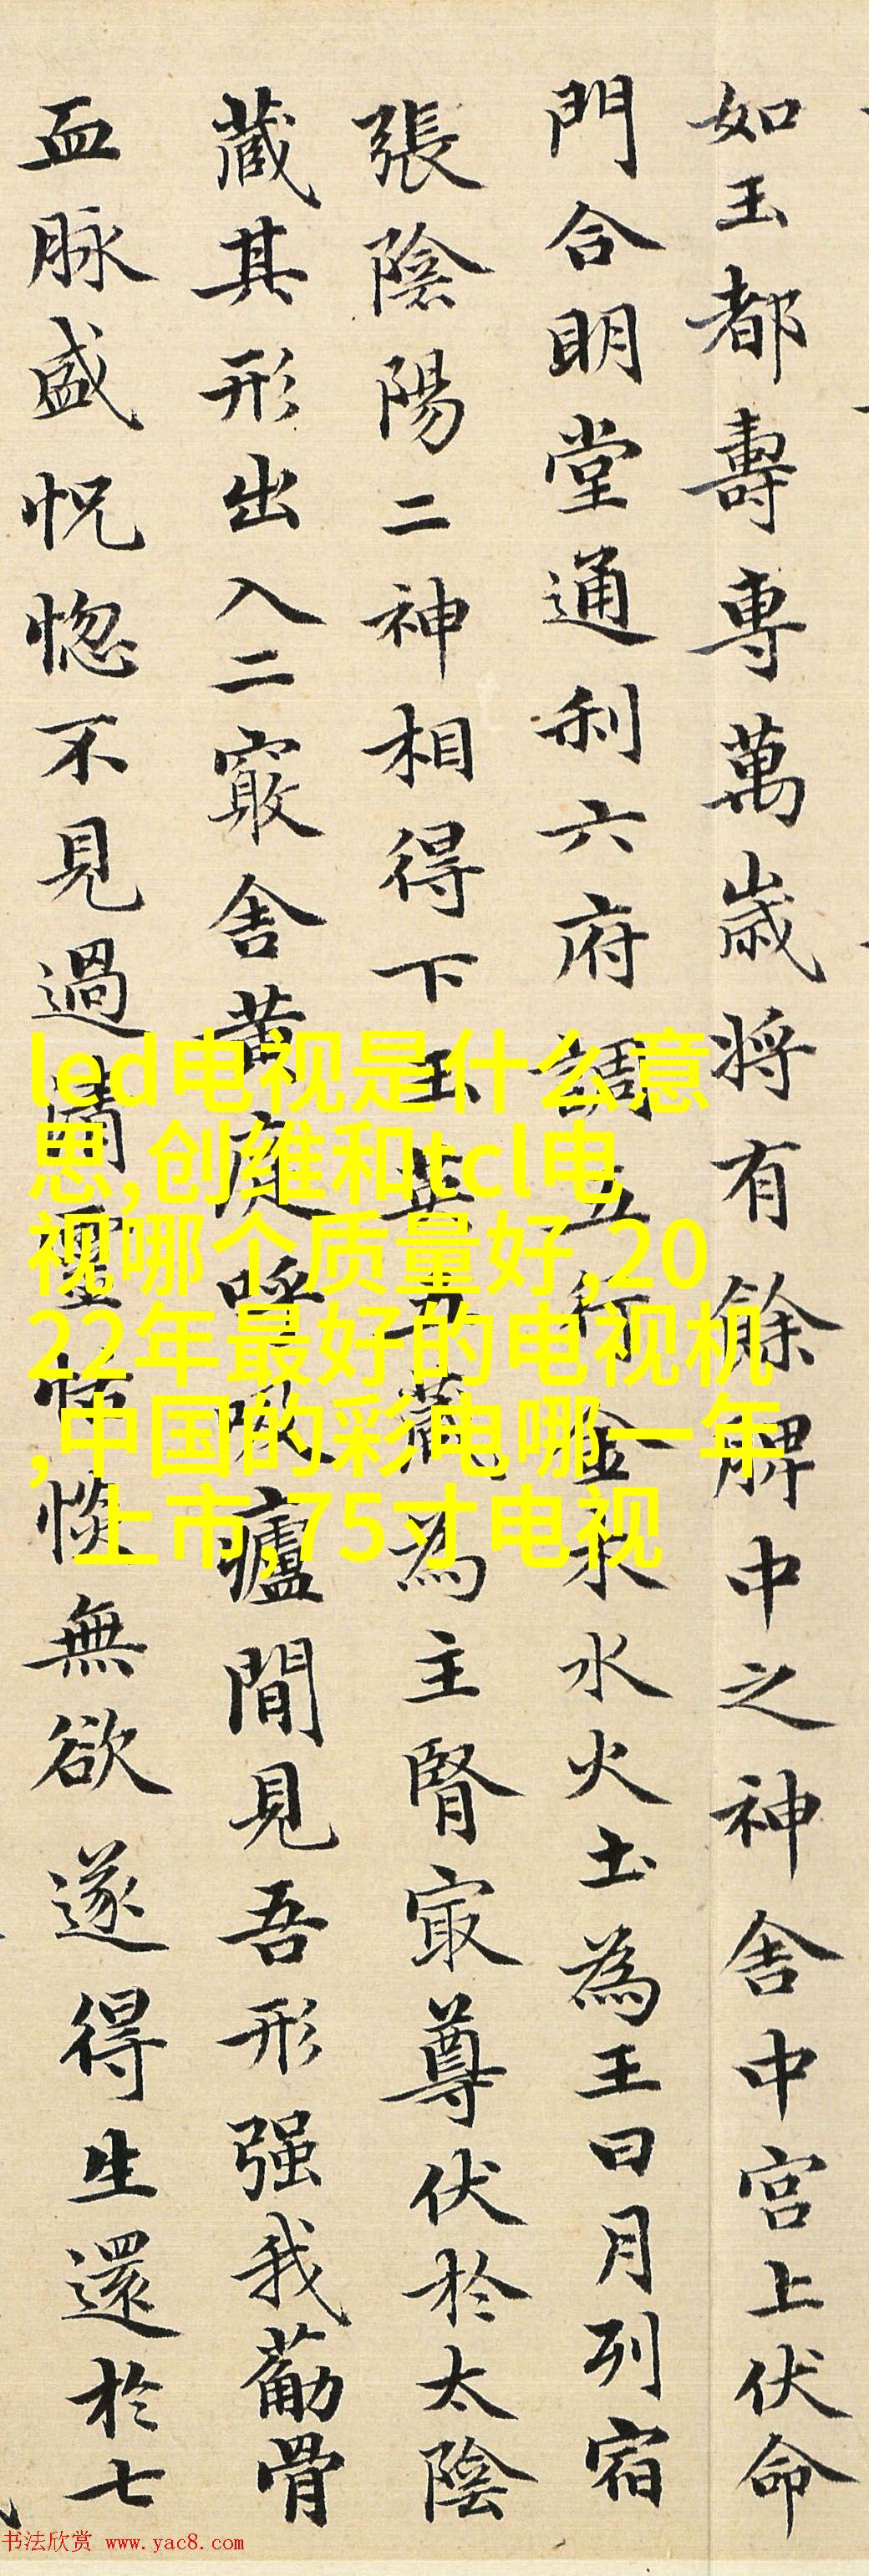 如玉都壽專萬歲將有餘脾中之神舍中宮上伏命
門合明堂通利六府調五行金木水火土為王日月列宿
張陰陽二神相得下玉英五藏為主腎㝡尊伏於太陰
藏其形出入二竅舍黄庭呼吸廬間見吾形强我筋骨
血脉盛怳惚不見過清靈恬惔無欲遂得生還於七
led电视是什么意
思,创维和tcl电
视哪个质量好,20
22年最好的电视机
,中国的彩电哪一年
上市,75寸电视
书法欣赏 www.yac8.com